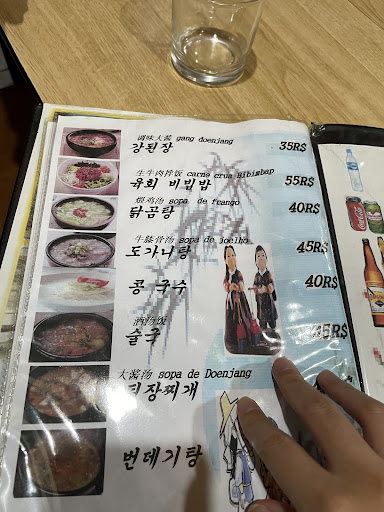 调味大酱 gang doenjang
강된장 35R$
生牛肉拌饭 carne crua Bibimbap
육회 비빔밥 55R$
鸡汤 sopa de frango
닭곰탕 40R$
牛膝骨汤 sopa de joelho
도가니탕 45R$
콩 국수 40R$
술국 45R$
大酱汤 sopa de Doenjang
된장찌개
번데기탕